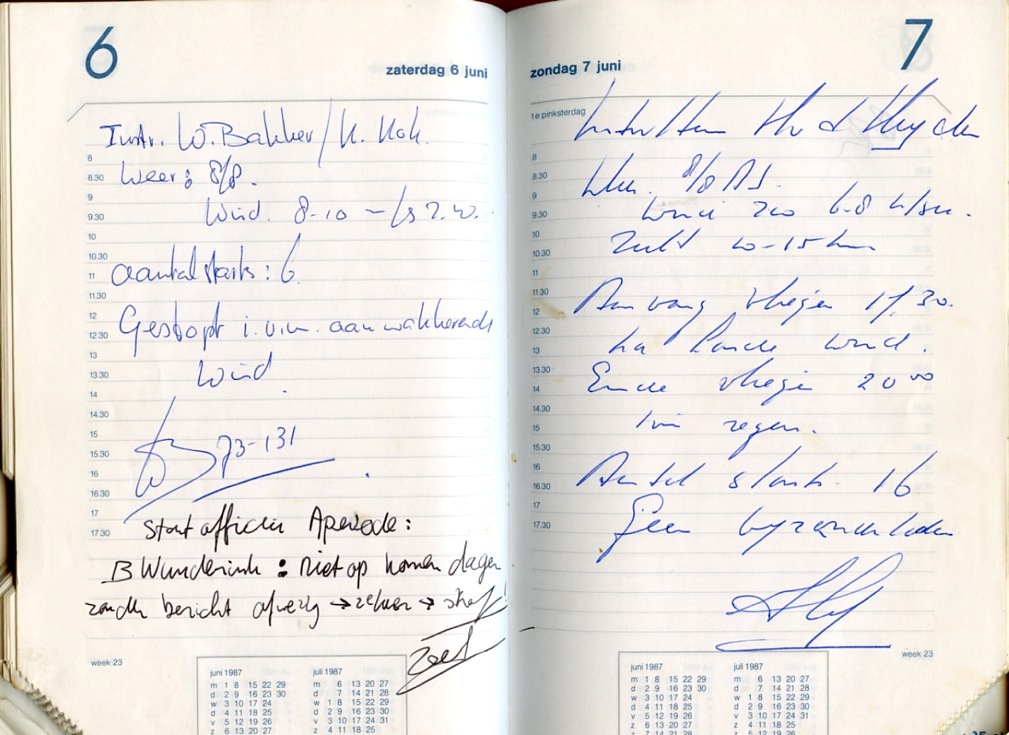 6
zaterdag 6 juni
Instr. W. Bakker / K. Kok.
Weer: 8/8.
Wind. 8-10
aantal starts: 6
Gestopt i.v.m. aanwakkerende
Wind
73-131
Start officier Aperzede:
B Wunderink : niet op komen dagen
zonder bericht afwezig → zeker →
8
8.30
9
9.30
10
10.30
11
11.30
12
12.30
13
13.30
14
14.30
15
15.30
16
16.30
17
17.30
week 23
juni 1987
m 1 8 15 22 29
d 2 9 16 23 30
w 3 10 17 24
d 4 11 18 25
v 5 12 19 26
z 6 13 20 27
juli 1987
m 6 13 20 27
d 7 14 21 28
w 1 8 15 22 29
d 2 9 16 23 30
v 3 10 17 24 31
z 4 11 18 25
7
zondag 7 juni
1e pinksterdag
v d Heyden
8/8 AS.
wind zw 6-8 m/sec.
Zicht 10-15 km
Aanvang vliegen 17.30.
harde wind.
Einde vliegen 20 00
ivm regen.
Aantal starts. 16
Geen byzonderheden
8
8.30
9
9.30
10
10.30
11
11.30
12
12.30
13
13.30
14
14.30
15
15.30
16
16.30
17
17.30
week 23
juni 1987
m 1 8 15 22 29
d 2 9 16 23 30
w 3 10 17 24
d 4 11 18 25
v 5 12 19 26
z 6 13 20 27
juli 1987
m 6 13 20 27
d 7 14 21 28
w 1 8 15 22 29
d 2 9 16 23 30
v 3 10 17 24 31
z 4 11 18 25